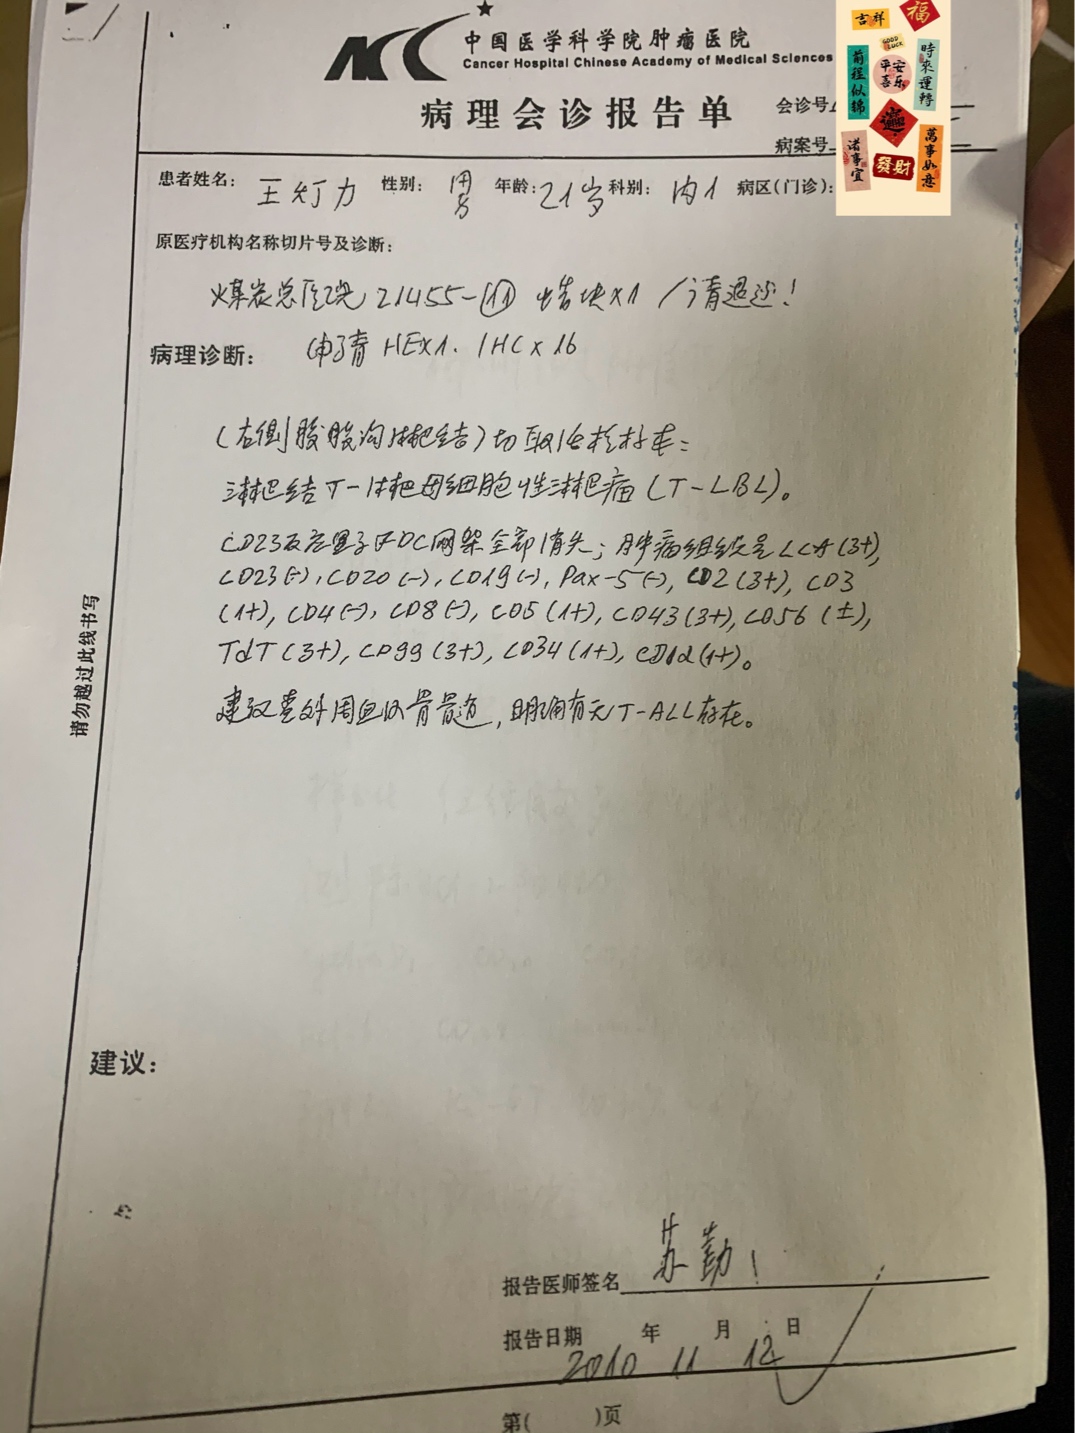 中国医学科学院肿瘤医院
Cancer Hospital Chinese Academy of Medical Sciences
病理会诊报告单
会诊号
病案号
吉祥
福
GOOD LUCK
前程似锦
平安喜乐
時來運轉
諸事宜
發財
萬事如意
患者姓名: 王灯力 性别: 男 年龄: 21岁 科别: 内1 病区(门诊):
原医疗机构名称切片号及诊断:
煤炭总医院 21455-⑪ 蜡块x1 /请退还!
病理诊断: 申请 HEx1. IHCx16
(右侧腹股沟淋巴结)切取活检标本:
淋巴结T-淋巴母细胞性淋巴瘤(T-LBL)。
CD23反应显示FDC网架全部消失; 肿瘤组织呈LCA(3+),
CD23(-), CD20(-), CD19(-), Pax-5(-), CD2(3+), CD3
(1+), CD4(-), CD8(-), CD5(1+), CD43(3+), CD56(±),
TdT(3+), CD99(3+), CD34(1+), CD1a(1+)。
建议查外周血以骨髓, 明确有无T-ALL存在。
请勿越过此线书写
建议:
报告医师签名 苏勤
报告日期 2010年 11月 12日
第( )页